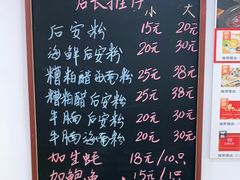 店长推荐
小 大
后安粉 15元 20元
海鲜后安粉 20元 30元
糟粕醋海南粉 25元 38元
糟粕醋后安粉 25元 38元
牛腩后安粉 20元 30元
牛腩海南粉 20元 30元
加生蚝 18元/10只
加鲍鱼 15元/1只